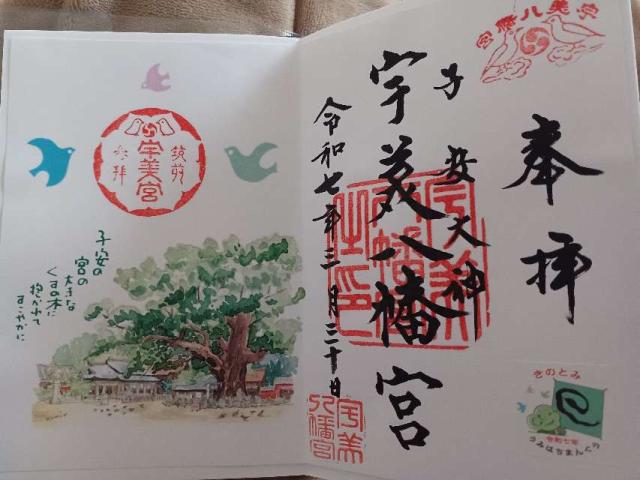 宇美八幡宮
奉拝
子安大神
宇美八幡宮
令和七年三月三十日
宇美
八幡宮
きのとみ
令和七年
うみはちまんぐう
筑前
宇美宮
参拝
子安の
宮の
大きな
くすの木に
抱かれて
すこやかに